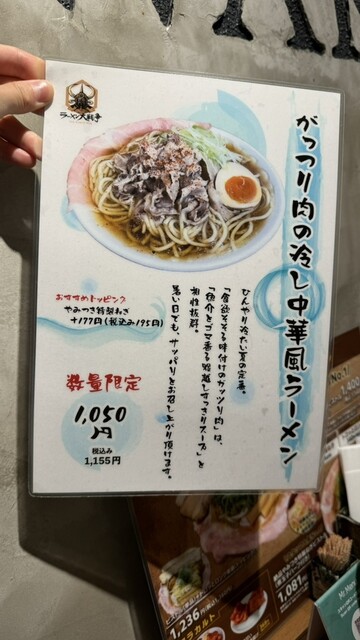 ラーメン大戦争
がっつり肉の冷し中華風ラーメン
ひんやり冷たい夏の定番。
「食欲そそる味付けのガッツリ肉」は、
「魚介とゴマ香る鶏越しすっきりスープ」と
相性抜群。
暑い日でも、サッパリとお召し上がり頂けます。
おすすめトッピング
やみつき特製ねぎ
+177円(税込み195円)
数量限定
1,050
円
税込み
1,155円
No.1
1,081
1,236円
ラカルト